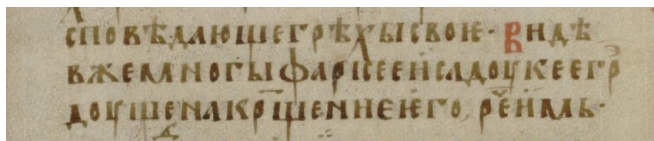 споведаюшегрѣхысвоѥ· видѣ
вжемногыфарисееисадоукеегр
доушенакр҃шениѥѥго рⷱ҇еимь·